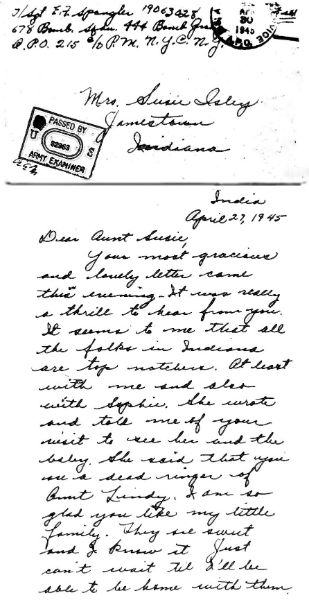 T/Sgt E. F. Spangler 19063028
678 Bomb. Sqdn. 444 Bomb Group
A.P.O. 215 c/o P.M. N.Y.C. N.Y.
Free
1945
Mrs. Susie Isley
Jamestown
Indiana
PASSED BY
U S
ARMY EXAMINER
India
April 27, 1945
Dear Aunt Susie,
Your most gracious
and lovely letter came
this evening. It was really
a thrill to hear from you.
It seems to me that all
the folks in Indiana
are top notchers. At least
with me and also
with Sophie. She wrote
and told me of your
visit to see her and the
baby. She said that you
are a dead ringer of
Aunt Lindy. I am so
glad you like my little
family. They are sweet
and I know it Just
can't wait til I'll be
able to be home with them